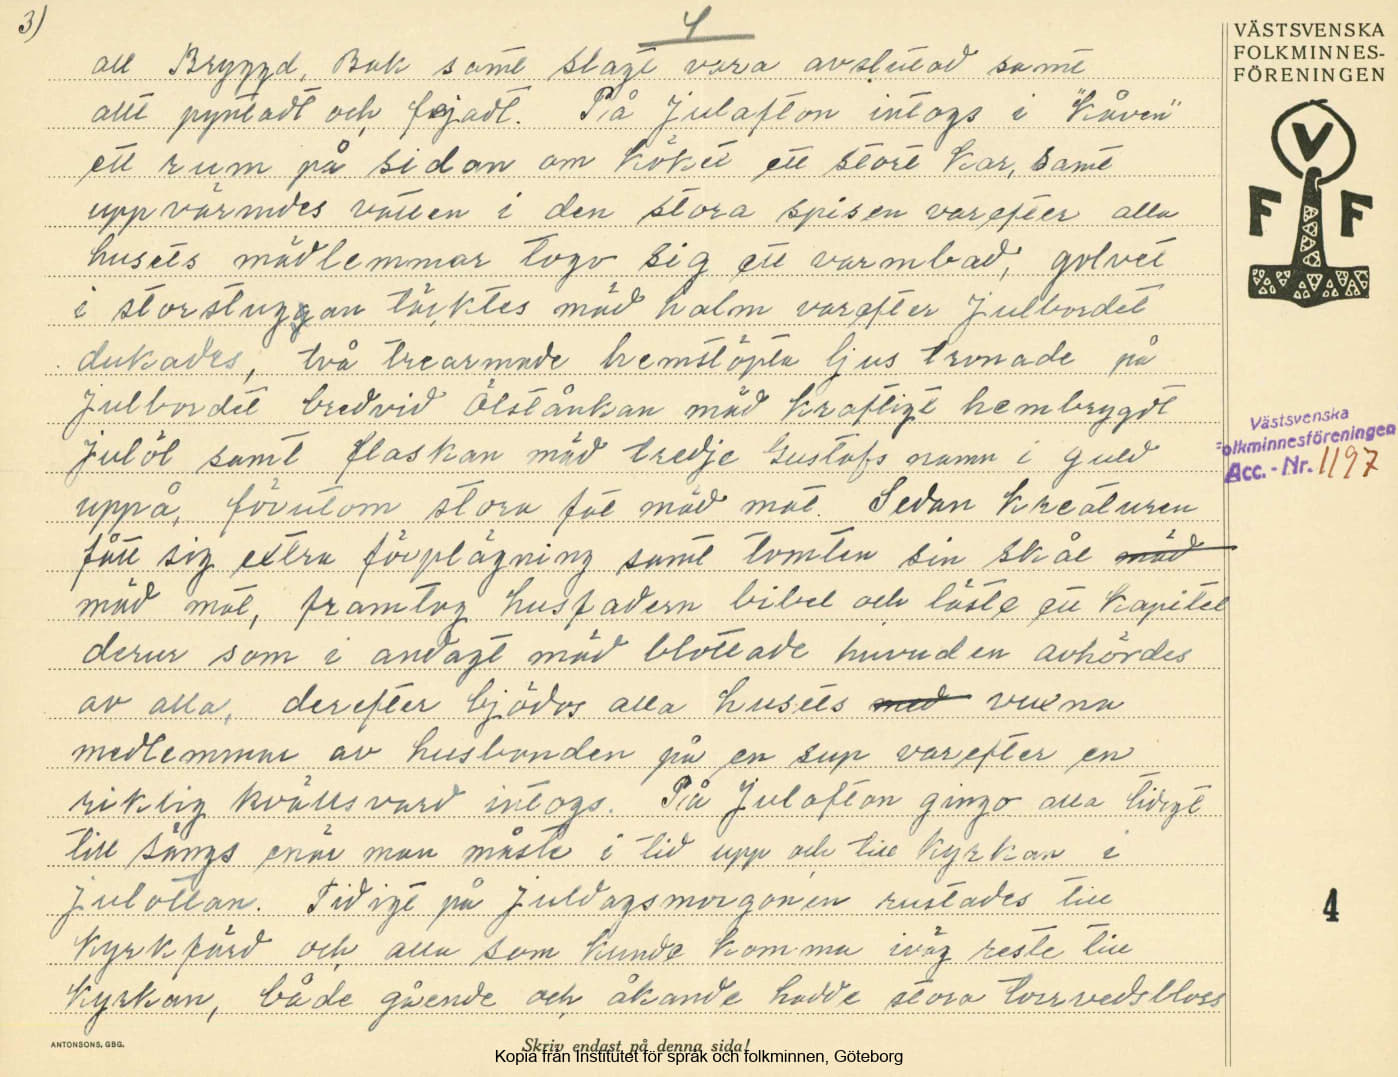 3)
4
VÄSTSVENSKA
FOLKMINNES-
FÖRENINGEN
V
F F
all Bryggd, Bak samt slagt vara avslutad samt
allt pyntadt och fejadt. På Julafton intogs i "Kåven"
ett rum på sidan om köket ett stort kar, samt
uppvärmdes vatten i den stora spisen varefter alla
husets mädlemmar togo sig ett varmbad, golvet
i storstuggan täcktes mäd halm varefter Julbordet
dukades, två trearmade hemstöpta ljus tronade på
Julbordet bredvid Ölstånkan mäd kraftigt hembrygdt
Julöl samt flaskan mäd tredje Gustafs namn i guld
uppå, förutom stora fat mäd mat. Sedan kreaturen
fått sig extra förplägning samt tomten sin skål mäd
mäd mat, framtog husfadern bibel och läste ett kapitel
derur som i andagt mäd blottade huvuden avhördes
av alla, derefter bjödos alla husets med vuxna
medlemmar av husbonden på en sup varefter en
riktig kvällsvard intogs. På Julafton gingo alla tidigt
till sängs enär man måste i tid upp och till kyrkan i
Julottan. Tidigt på Juldagsmorgonen rustades till
kyrkfärd och alla som kunde komma iväg reste till
kyrkan, både gående och åkande hadde stora torrvedsbloss
Västsvenska
Folkminnesföreningen
Acc.-Nr. 1197
4
ANTONSONS, GBG.
Skriv endast på denna sida!
Kopia från Institutet för språk och folkminnen, Göteborg